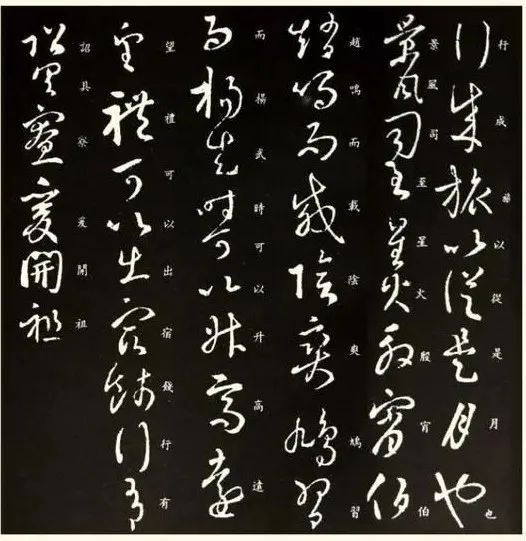 行成旅以從是月也
行成旅以從是月也
景風司至星火殷宵伯
景風司至星火殷宵伯
趙鳴而載陰爽鳩習
趙鳴而載陰爽鳩習
而揚武時可以升高遠
而揚武時可以升高遠
望禮可以出宿餞行有
望禮可以出宿餞行有
詔具寮爰開祖
詔具寮爰開祖